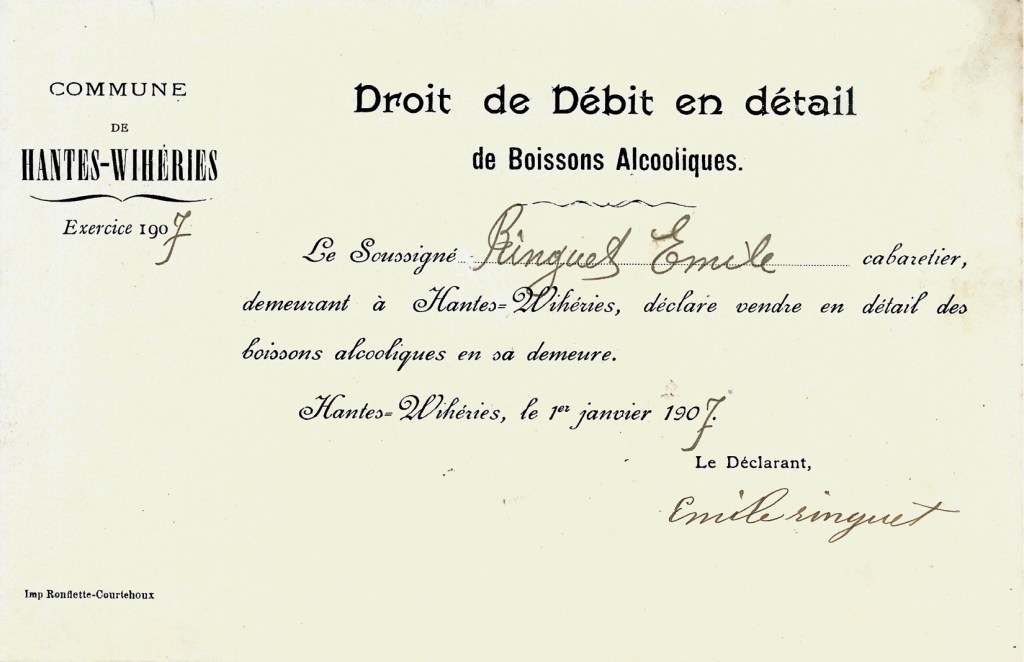 COMMUNE
DE
HANTES-WIHÉRIES
Exercice 1907
Droit de Débit en détail
de Boissons Alcooliques.
Le Soussigné Ringuet Emile cabaretier,
demeurant à Hantes=Wihéries, déclare vendre en détail des
boissons alcooliques en sa demeure.
Hantes=Wihéries, le 1er janvier 1907.
Le Déclarant,
Emile ringuet
Imp Ronflette-Courtehoux